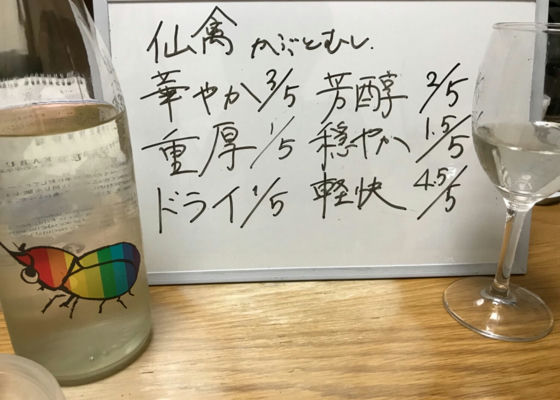 仙禽 かぶとむし.
華やか 3/5 芳醇 2/5
重厚 1/5 穏やか 1.5/5
ドライ 1/5 軽快 4.5/5